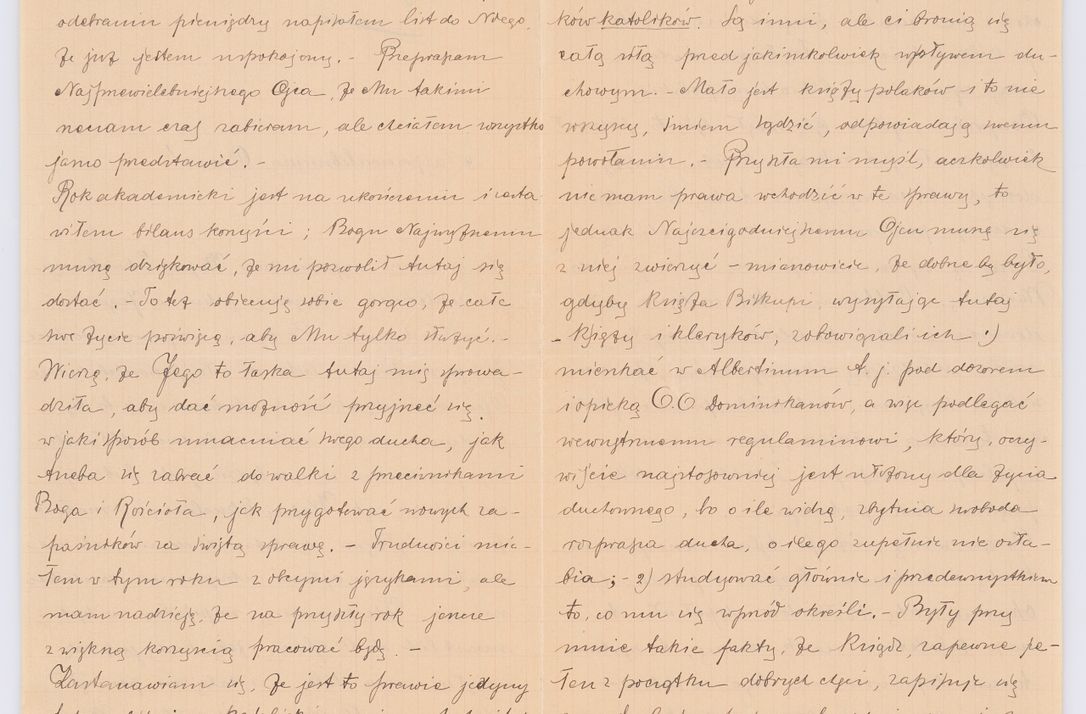 odebraniu pieniędzy napisałem list do Niego,
że już jestem uspokojony. - Przepraszam
Najprzewielebniejszego Ojca, że Mu takimi
czas zabieram, ale chciałem wszystko
jasno przedstawić. -
Rok akademicki jest na ukończeniu i zesta
wiłem bilans korzyści; Bogu Najwyższemu
muszę dziękować, że mi pozwolił tutaj się
dostać. - To też obiecuję sobie gorąco, że całe
swe życie poświęcę, aby Mu tylko służyć. -
Wierzę, że Jego to łaska tutaj mię sprowa-
dziła, aby dać możność przyjrzeć się,
w jaki sposób umacniać swego ducha, jak
trzeba się zabrać do walki z przeciwnikami
Boga i Kościoła, jak przygotować nowych za-
paśników za świętą sprawę. - Trudności mia-
łem w tym roku z obcymi językami, ale
mam nadzieję, że na przyszły rok jeszcze
z większą korzyścią pracować będę. -
Zastanawiam się, że jest to prawie jedyny
ków katolików. Są inni, ale ci bronią się
całą siłą przed jakimkolwiek wpływem du-
chowym. - Mało jest księży polaków i to nie
wszyscy, śmiem sądzić, odpowiadają swemu
powołaniu. - Przyszła mi myśl, aczkolwiek
nie mam prawa wchodzić w te sprawy, to
jednak Najczcigodniejszemu Ojcu muszę się
z niej zwierzyć - mianowicie, że dobrze by było,
gdyby Księża Biskupi, wysyłając tutaj
księży i kleryków, zobowiązali ich 1)
mieszkać w Albertinum t. j. pod dozorem
i opieką OO Dominikanów, a więc podlegać
wewnętrznemu regulaminowi, który, oczy-
wiście najstosowniej jest ułożony dla życia
duchownego, bo o ile widzę, zbytnia swoboda
rozprasza ducha, o ile go zupełnie nie osła-
bia; - 2) studjować głównie i przedewszystkiem
to, co mu się wprzód określi. - Były przy
mnie takie fakty, że Ksiądz, zapewne pe-
łen z początku dobrych chęci, zapisuje się